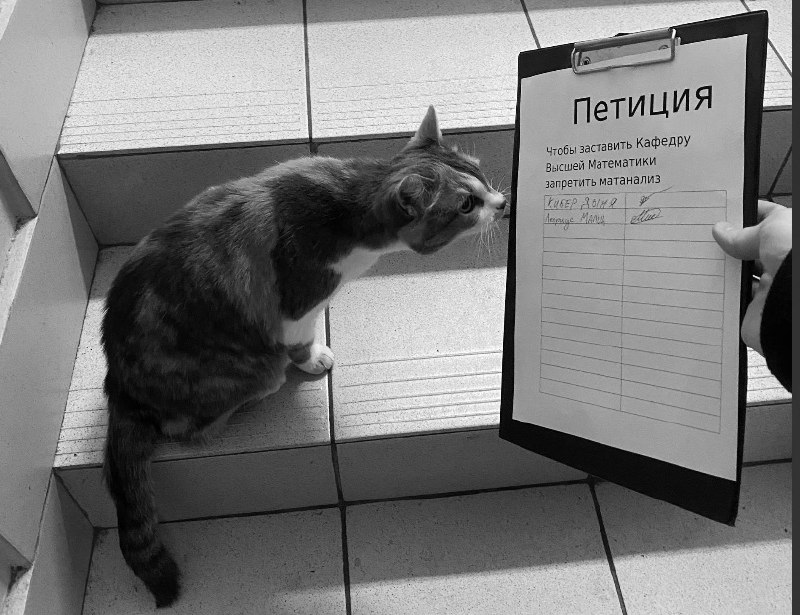 Петиция
Чтобы заставить Кафедру
Высшей Математики
запретить матанализ
КИБЕР ДЫНЯ